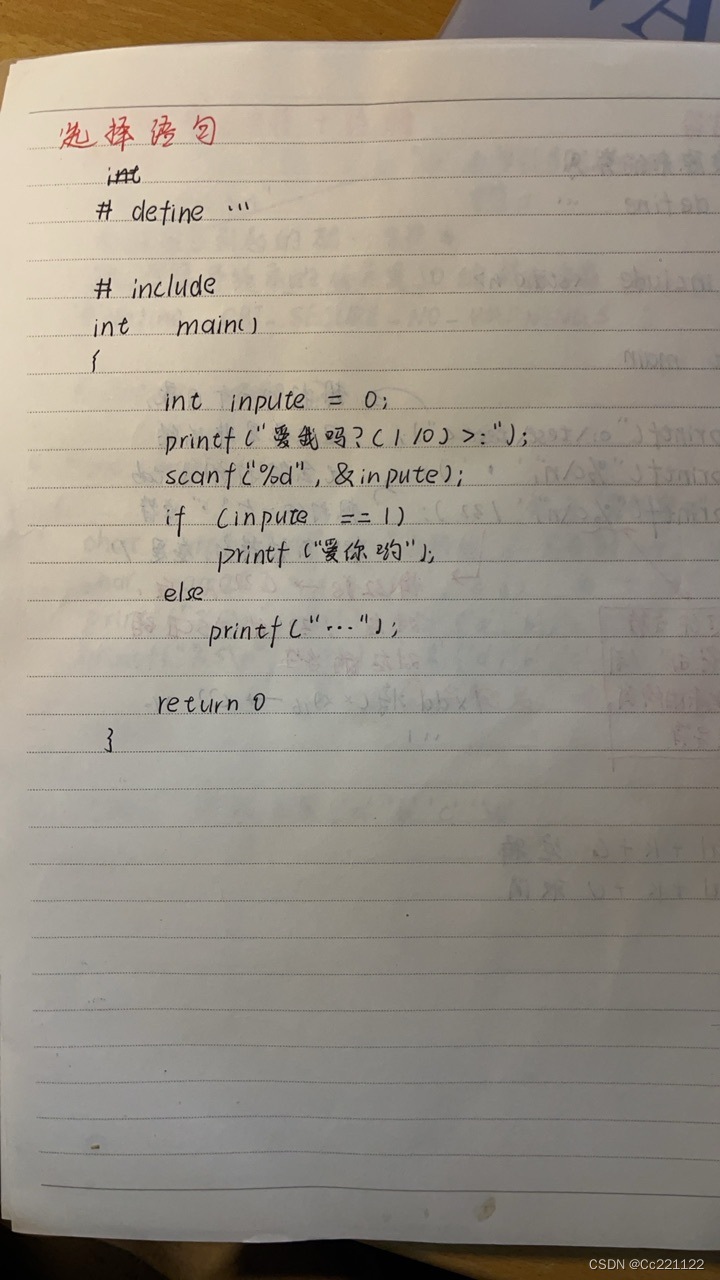 选择语句
int
# define ...
# include
int main()
{
int inpute = 0;
printf("爱我吗?(1/0)>:");
scanf("%d", &inpute);
if (inpute == 1)
printf("爱你哟");
else
printf("...");
return 0
}
CSDN @Cc221122